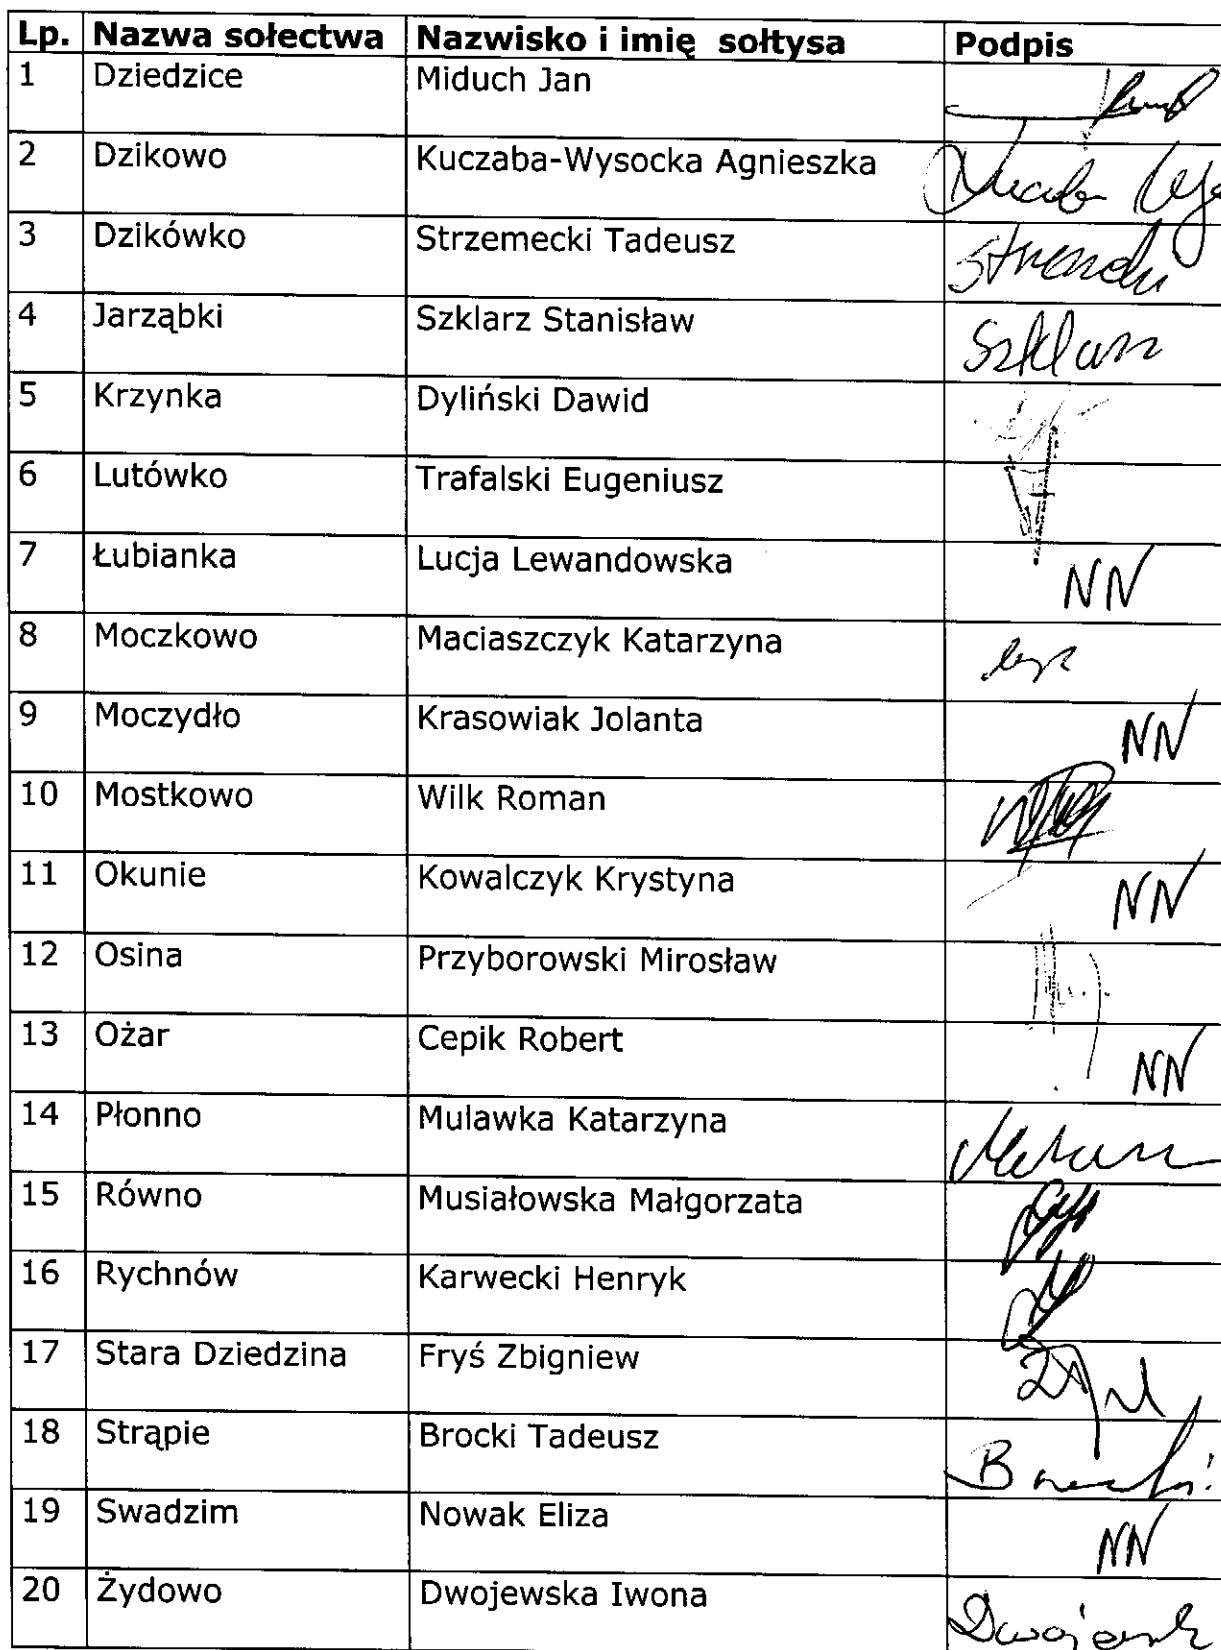 Lp. Nazwa sołectwa Nazwisko i imię sołtysa Podpis
1 Dziedzice Miduch Jan
2 Dzikowo Kuczaba-Wysocka Agnieszka
3 Dzikówko Strzemecki Tadeusz
4 Jarząbki Szklarz Stanisław Szklarz
5 Krzynka Dyliński Dawid
6 Lutówko Trafalski Eugeniusz
7 Łubianka Lucja Lewandowska NN
8 Moczkowo Maciaszczyk Katarzyna
9 Moczydło Krasowiak Jolanta NN
10 Mostkowo Wilk Roman
11 Okunie Kowalczyk Krystyna NN
12 Osina Przyborowski Mirosław
13 Ożar Cepik Robert NN
14 Płonno Mulawka Katarzyna
15 Równo Musiałowska Małgorzata
16 Rychnów Karwecki Henryk
17 Stara Dziedzina Fryś Zbigniew
18 Strąpie Brocki Tadeusz
19 Swadzim Nowak Eliza NN
20 Żydowo Dwojewska Iwona